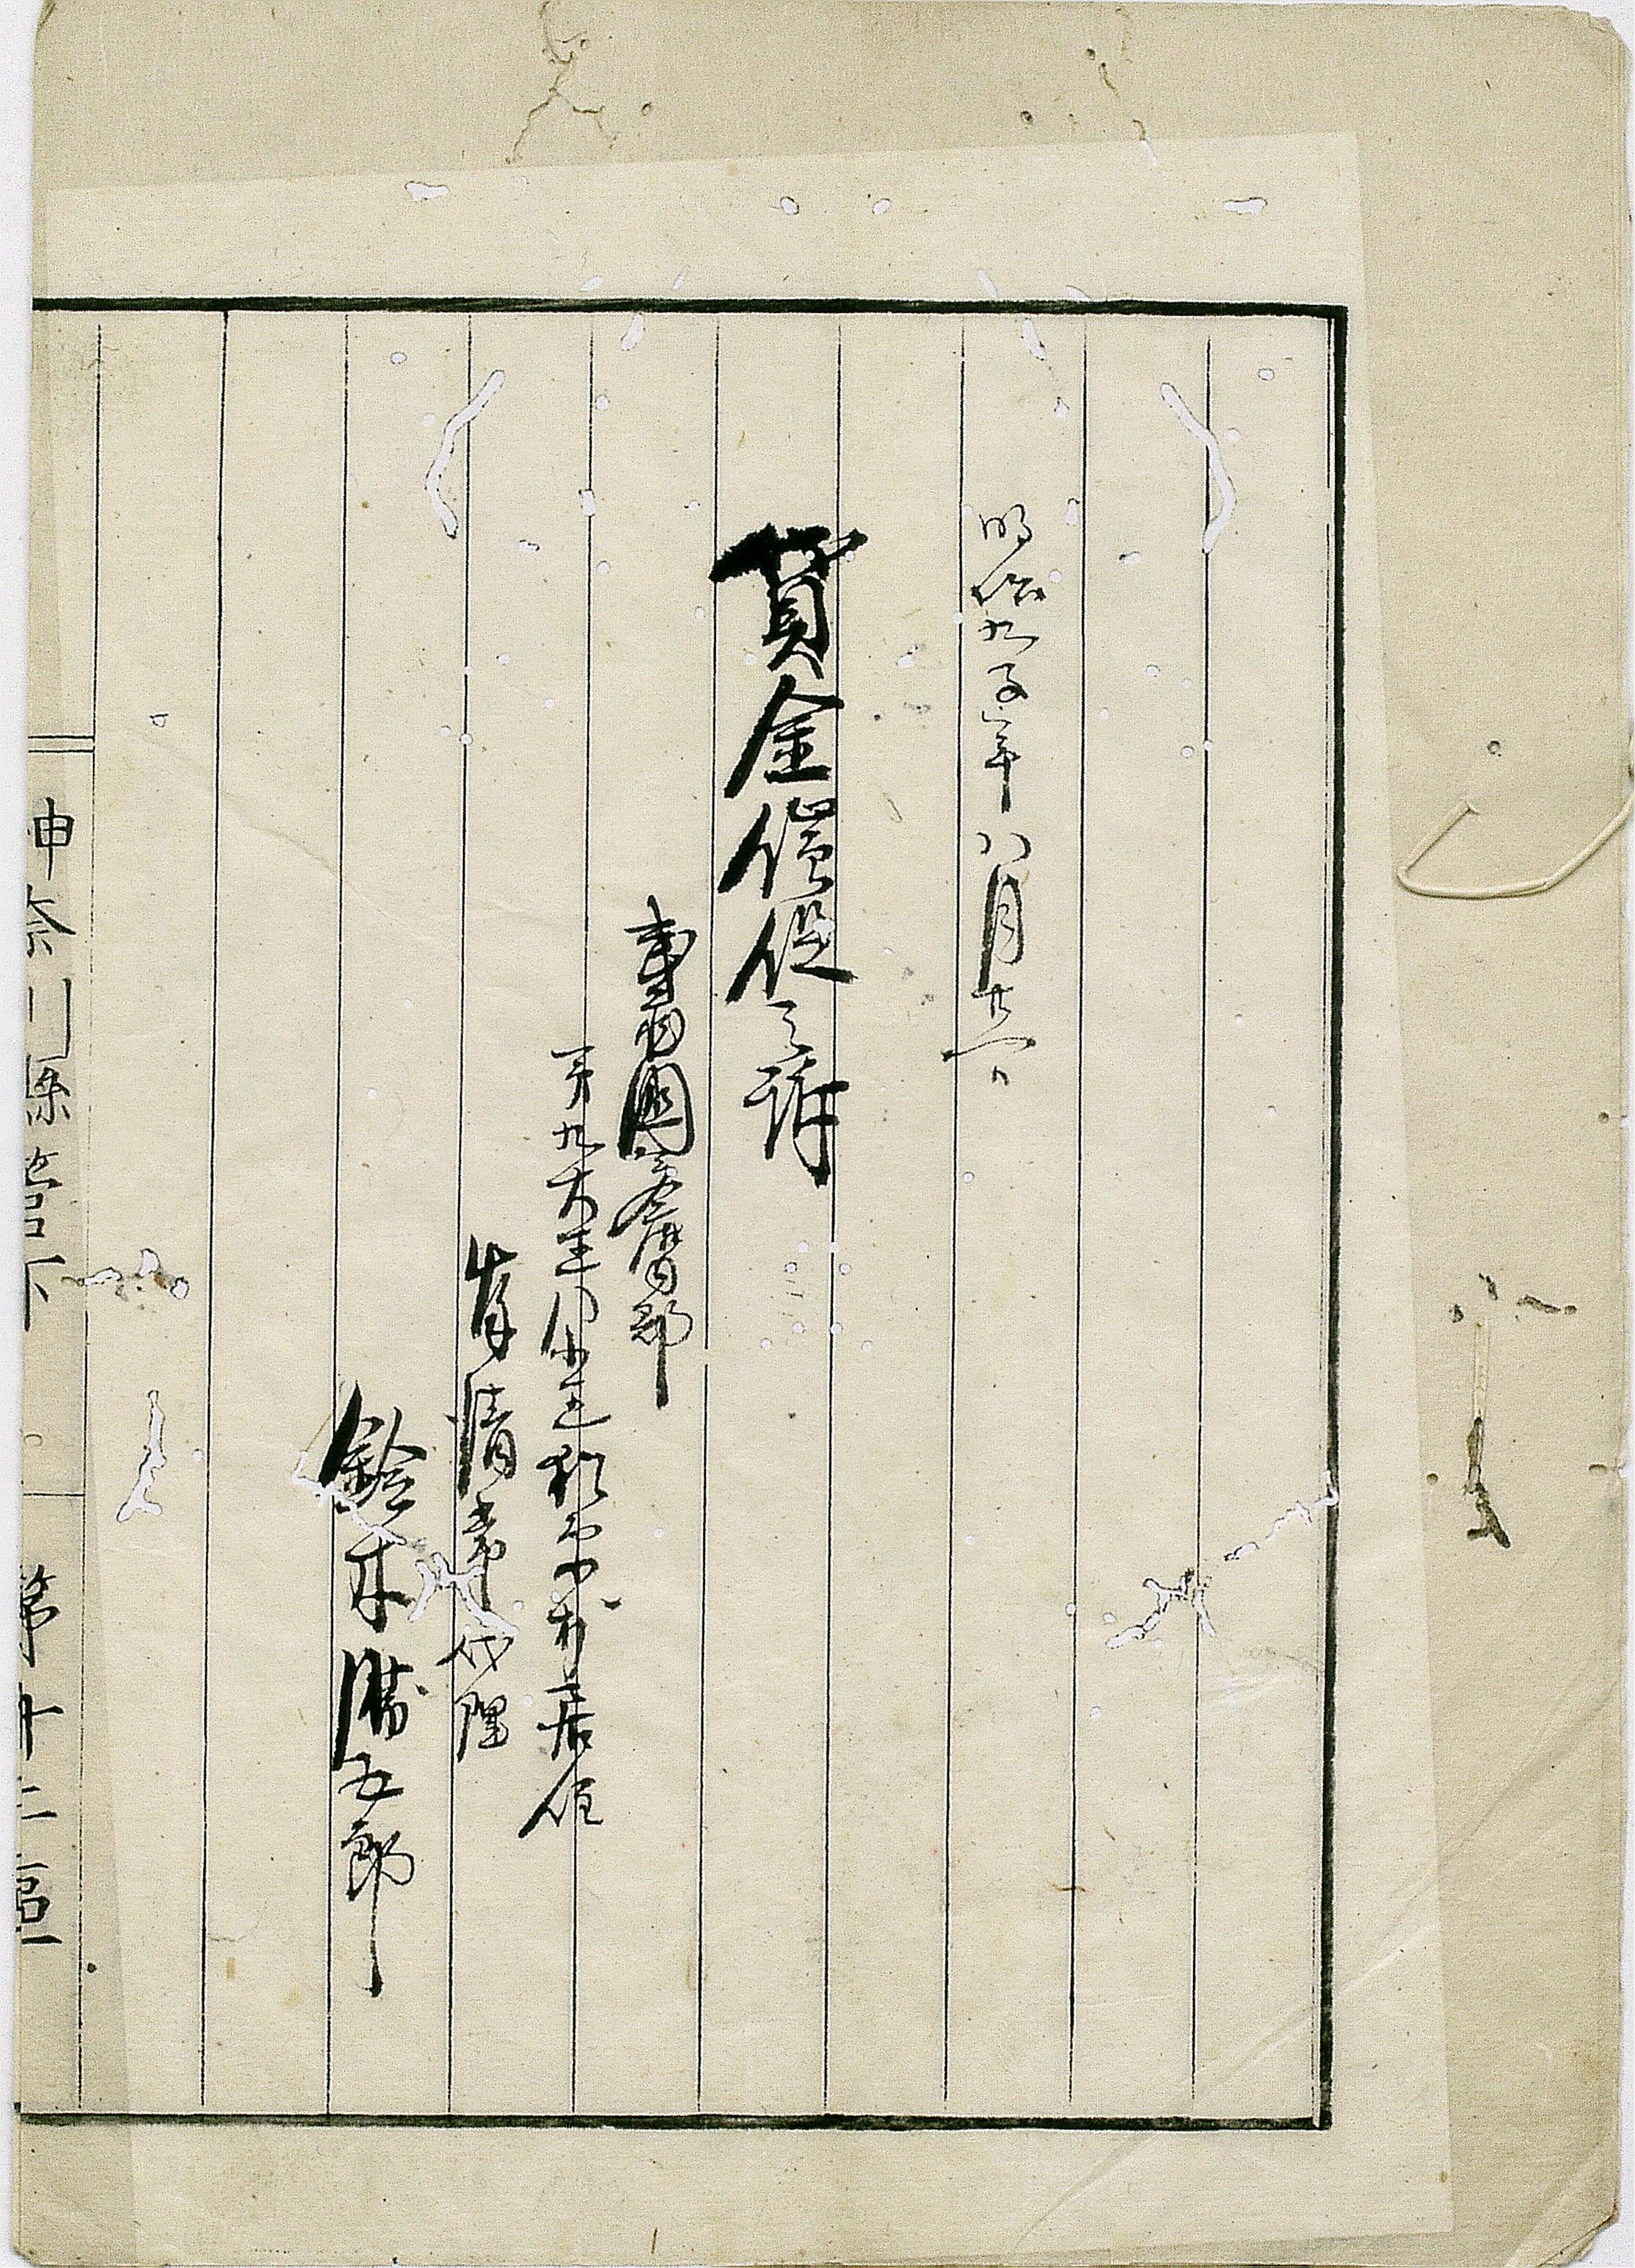 明治九子年八月廿六日
貸金催促之訴
國多摩郡
第九大区八小区村居住
岸清常代理
鈴木勝五郎
神奈川縣管下 第十二區